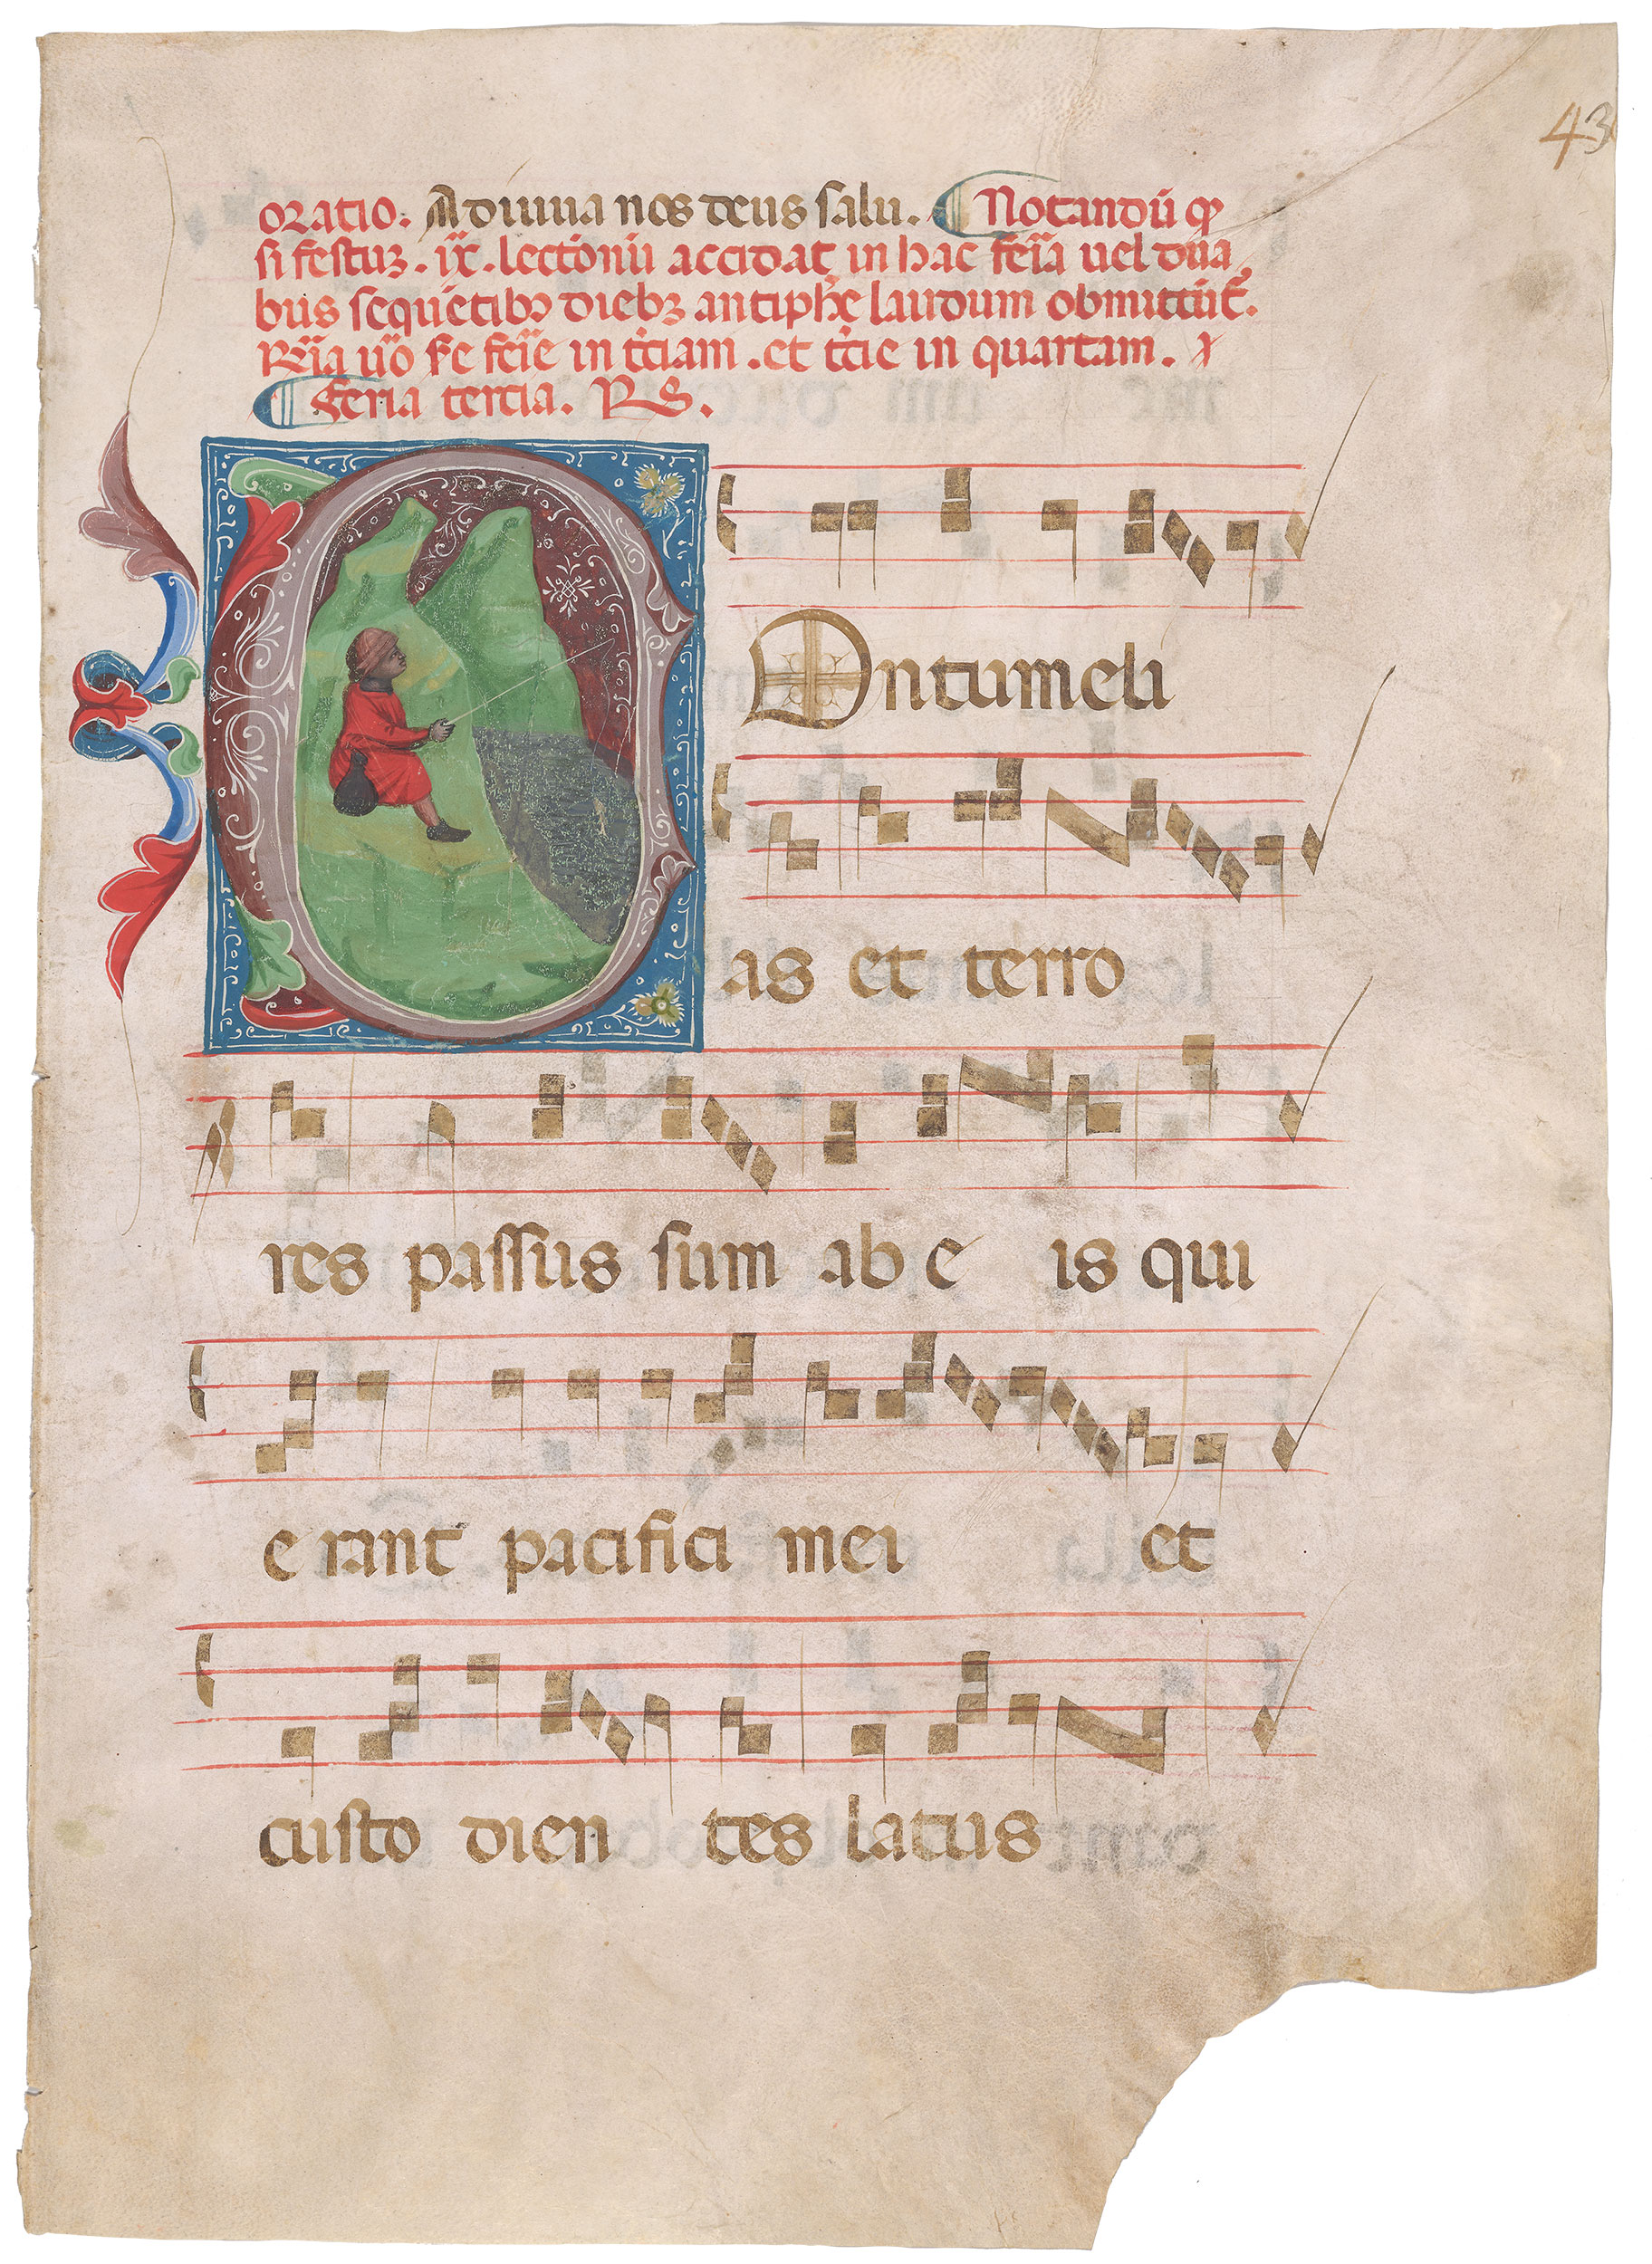 43
oratio. Adiuua nos deus salu. Notandū ꝙ
si festuꝫ. ix. lectionū accidat in hac feīa uel dua
bus sequētibꝰ diebꝫ antiphe laudum obmittūt̄.
in t̄ciam. et t̄cie in quartam.
Feria tercia. R̄.
Ontumeli
as et terro
res passus sum ab e is qui
e rant pacifici mei et
custo dien tes latus